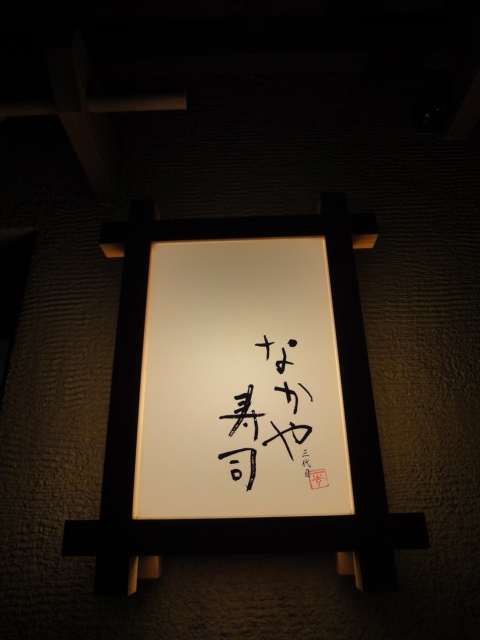 なかや
寿司
三代目